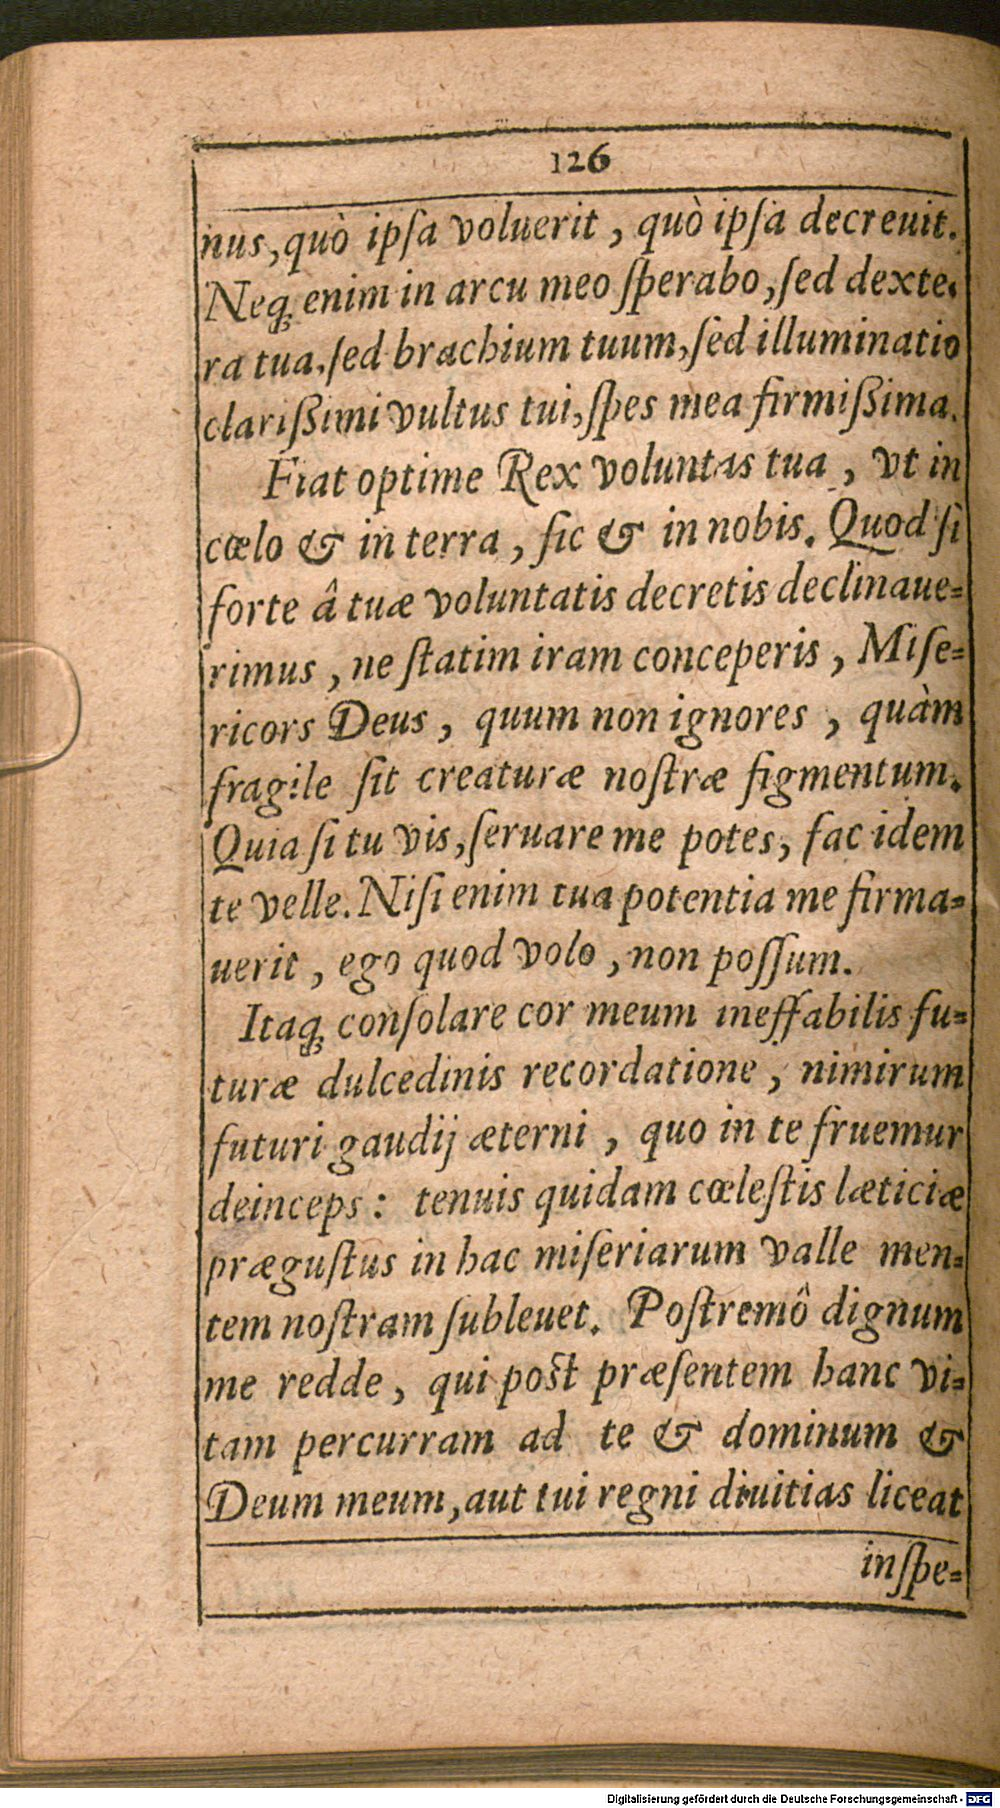 126
nus, quò ipſa voluerit, quò ipſa decreuit.
Neqꝫ enim in arcu meo ſperabo, ſed dexte-
ra tua, ſed brachium tuum, ſed illuminatio
clariſſimi vultus tui, ſpes mea firmiſſima.
Fiat optime Rex voluntas tua, vt in
cœlo & in terra, ſic & in nobis. Quod ſi
forte â tuæ voluntatis decretis declinaue-
rimus, ne ſtatim iram conceperis, Miſe-
ricors Deus, quum non ignores, quàm
fragile ſit creaturæ noſtræ figmentum.
Quia ſi tu vis, ſeruare me potes, fac idem
te velle. Niſi enim tua potentia me firma-
uerit, ego quod volo, non poſſum.
Itaqꝫ conſolare cor meum ineffabilis fu-
turæ dulcedinis recordatione, nimirum
futuri gaudij æterni, quo in te fruemur
deinceps: tenuis quidam cœleſtis læticiæ
præguſtus in hac miſeriarum valle men-
tem noſtram ſubleuet. Poſtremô dignum
me redde, qui poſt præſentem hanc vi-
tam percurram ad te & dominum &
Deum meum, aut tui regni diuitias liceat
inſpe-
Digitalisierung gefördert durch die Deutsche Forschungsgemeinschaft - DFG